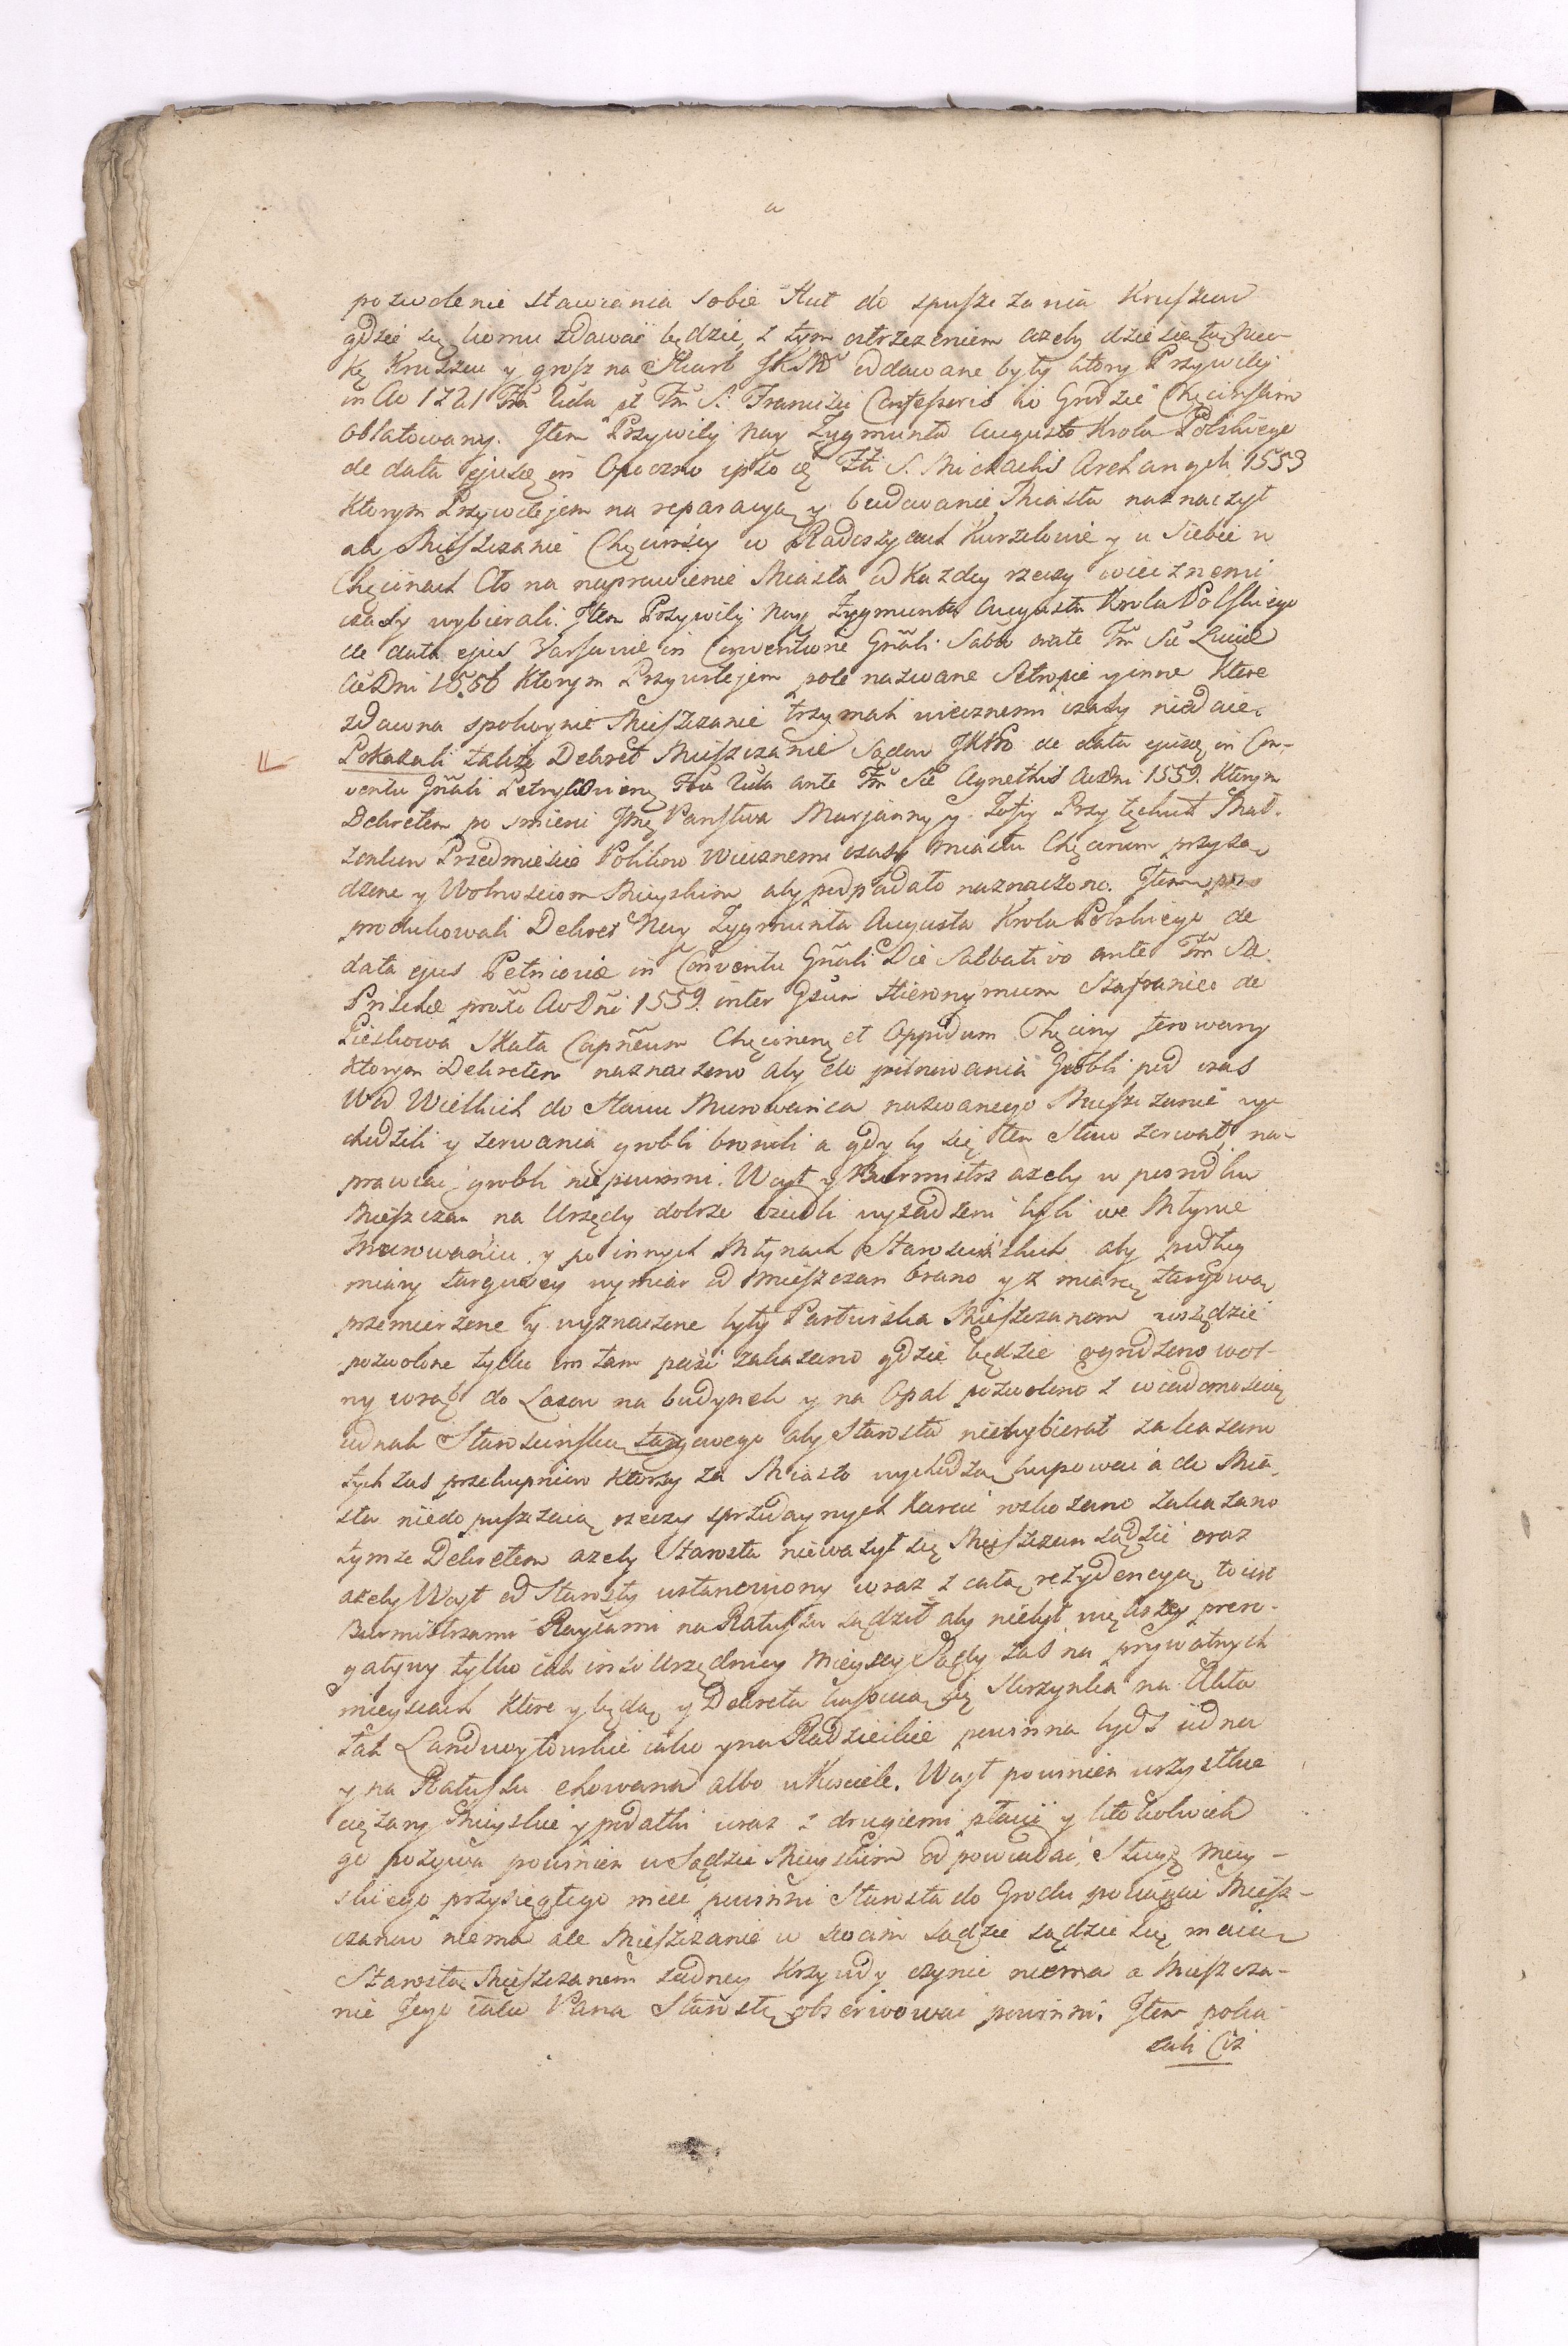 pozwolenie stawiania sobie Hut do spuszczania Kruszcow
gdzie się komu zdawać będzie, z tym ostrzezeniem azeby dziesiątą Niec-
kę Kruszcu y grosz na Skarb JKMć oddawane były ktory Przywiley
in Ao 1721 Fra 2da pt Fm S. Francisci Confessoris w Grodzie Chęcinskim
oblatowany. Jtem Przywiley Nay Zygmunta Augusta Krola Polskiego
de data ejusdę in Opoczno ipso die Fti S. Michaelis Archangeli 1553
Ktorym Przywilejem na reparacyą y budowanie Miasta naznaczył
aby Mieszczanie Chęcinscy w Radoszycach Kurzelowie y u Siebie w
Chęcinach Cło na naprawienie Miasta od Kazdey rzeczy wiecznemi
czasy wybierali. Jtem Przywiley Nay Zygmunta Augusta Krola Polskiego
de data ejus Varsavie in Conventione Gnãli Sabbo ante Fm Stæ Luciæ
AoDni 1556 Ktorym Przywilejem pole nazwane y inne Ktore
zdawna spokoynie Mieszczanie trzymali wiecznemi czasy nadaie.
Pokazali także Dekret Mieszczanie Sądow JKMć de data ejusdę in Con-
ventu Gnãli Petrycovienę Fria 2da ante Fm Stæ Agnethis AoDni 1559. Ktorym
Dekretem po smierci Jmę Panstwa Marjanny y Zofiy Przyłęckich Mał-
zonkow Przedmiescie wiecznemi czasy miastu Chęcinom przysą-
dzone y Wolnosciom Mieyskim aby podpadało naznaczono. Jtem
produkowali Dekret Nay Zygmunta Augusta Krola Polskiego de
data ejus Petricoviæ in Conventu Gnãli Die Sabbativo ante Fm Stæ
Priscæ proxo AoDni 1559. inter Gsum Hieronymum Szafraniec de
Pieskowa Skała Capneum Chęcinenę et Oppidum Chęciny ferowany
Ktorym Dekretem naznaczono aby do pilnowania Grobli pod czas
Wod Wielkich do Stawu Murowanica nazwanego Mieszczanie wy-
chodzili y zerwania grobli bronili a gdy by się ten Staw zerwał na-
prawiać grobli niepowinni. Woyt y Burmistrz azeby w porządku
Mieszczan na Urzędy dobrze osiedli wysadzeni byli we Młynie
Murowańcu y po innych Młynach Starościńskich aby podług
miary targowey wymiar od mieszczan brano y z miarą targową
przemierzone y wyznaczone były Pastwiska Mieszczanom wszędzie
pozwolone tylko im tam paść zakazano gdzie będzie ogrodzono wol-
ny wrąb do Lasow na budynek y na Opał pozwolono z wiadomością
iednak Starościńską targowego aby Starosta niewybierał zakazano
tych zas przekupniow ktorzy za Miasto wychodzą kupować a do Mia-
sta niedopuszczaią rzeczy sprzedaynych karać rozkazano zakazano
tymze Dekretem azeby Starosta niewazył się Mieszczan sądzić oraz
azeby Woyt od Starosty ustanowiony wraz z całą rezydencyą, to iest
Burmistrzami Raycami na Ratuszu sądził aby niebył większey prero-
gatywy tylko iak insi Urzędnicy Mieyscy Sądy zas na prywatnych
mieyscach Ktore y będą y Dekreta kassuią się Skrzynka na Akta
tak Landwoytowskie iako y na Radzieckie powinna bydź iedna
y na Ratuszu chowana albo w Kosciele. Woyt powinien wszystkie
ciężary Mieyskie y podatki wraz z drugiemi płacić y ktokolwiek
go pozywa powinien w Sądzie Mieyskim odpowiadać, Sługę miey-
skiego przysięgłego mieć powinni Starosta do Grodu pociągać Miesz-
czanow niema ale Mieszczanie w swoim Sądzie sądzić się maią
Starosta Mieszczanom zadney Krzywdy czynić niema a Mieszcza-
nie Jego iako Pana Starostę obserwować powinni. Jtem poka-
zali Ciz